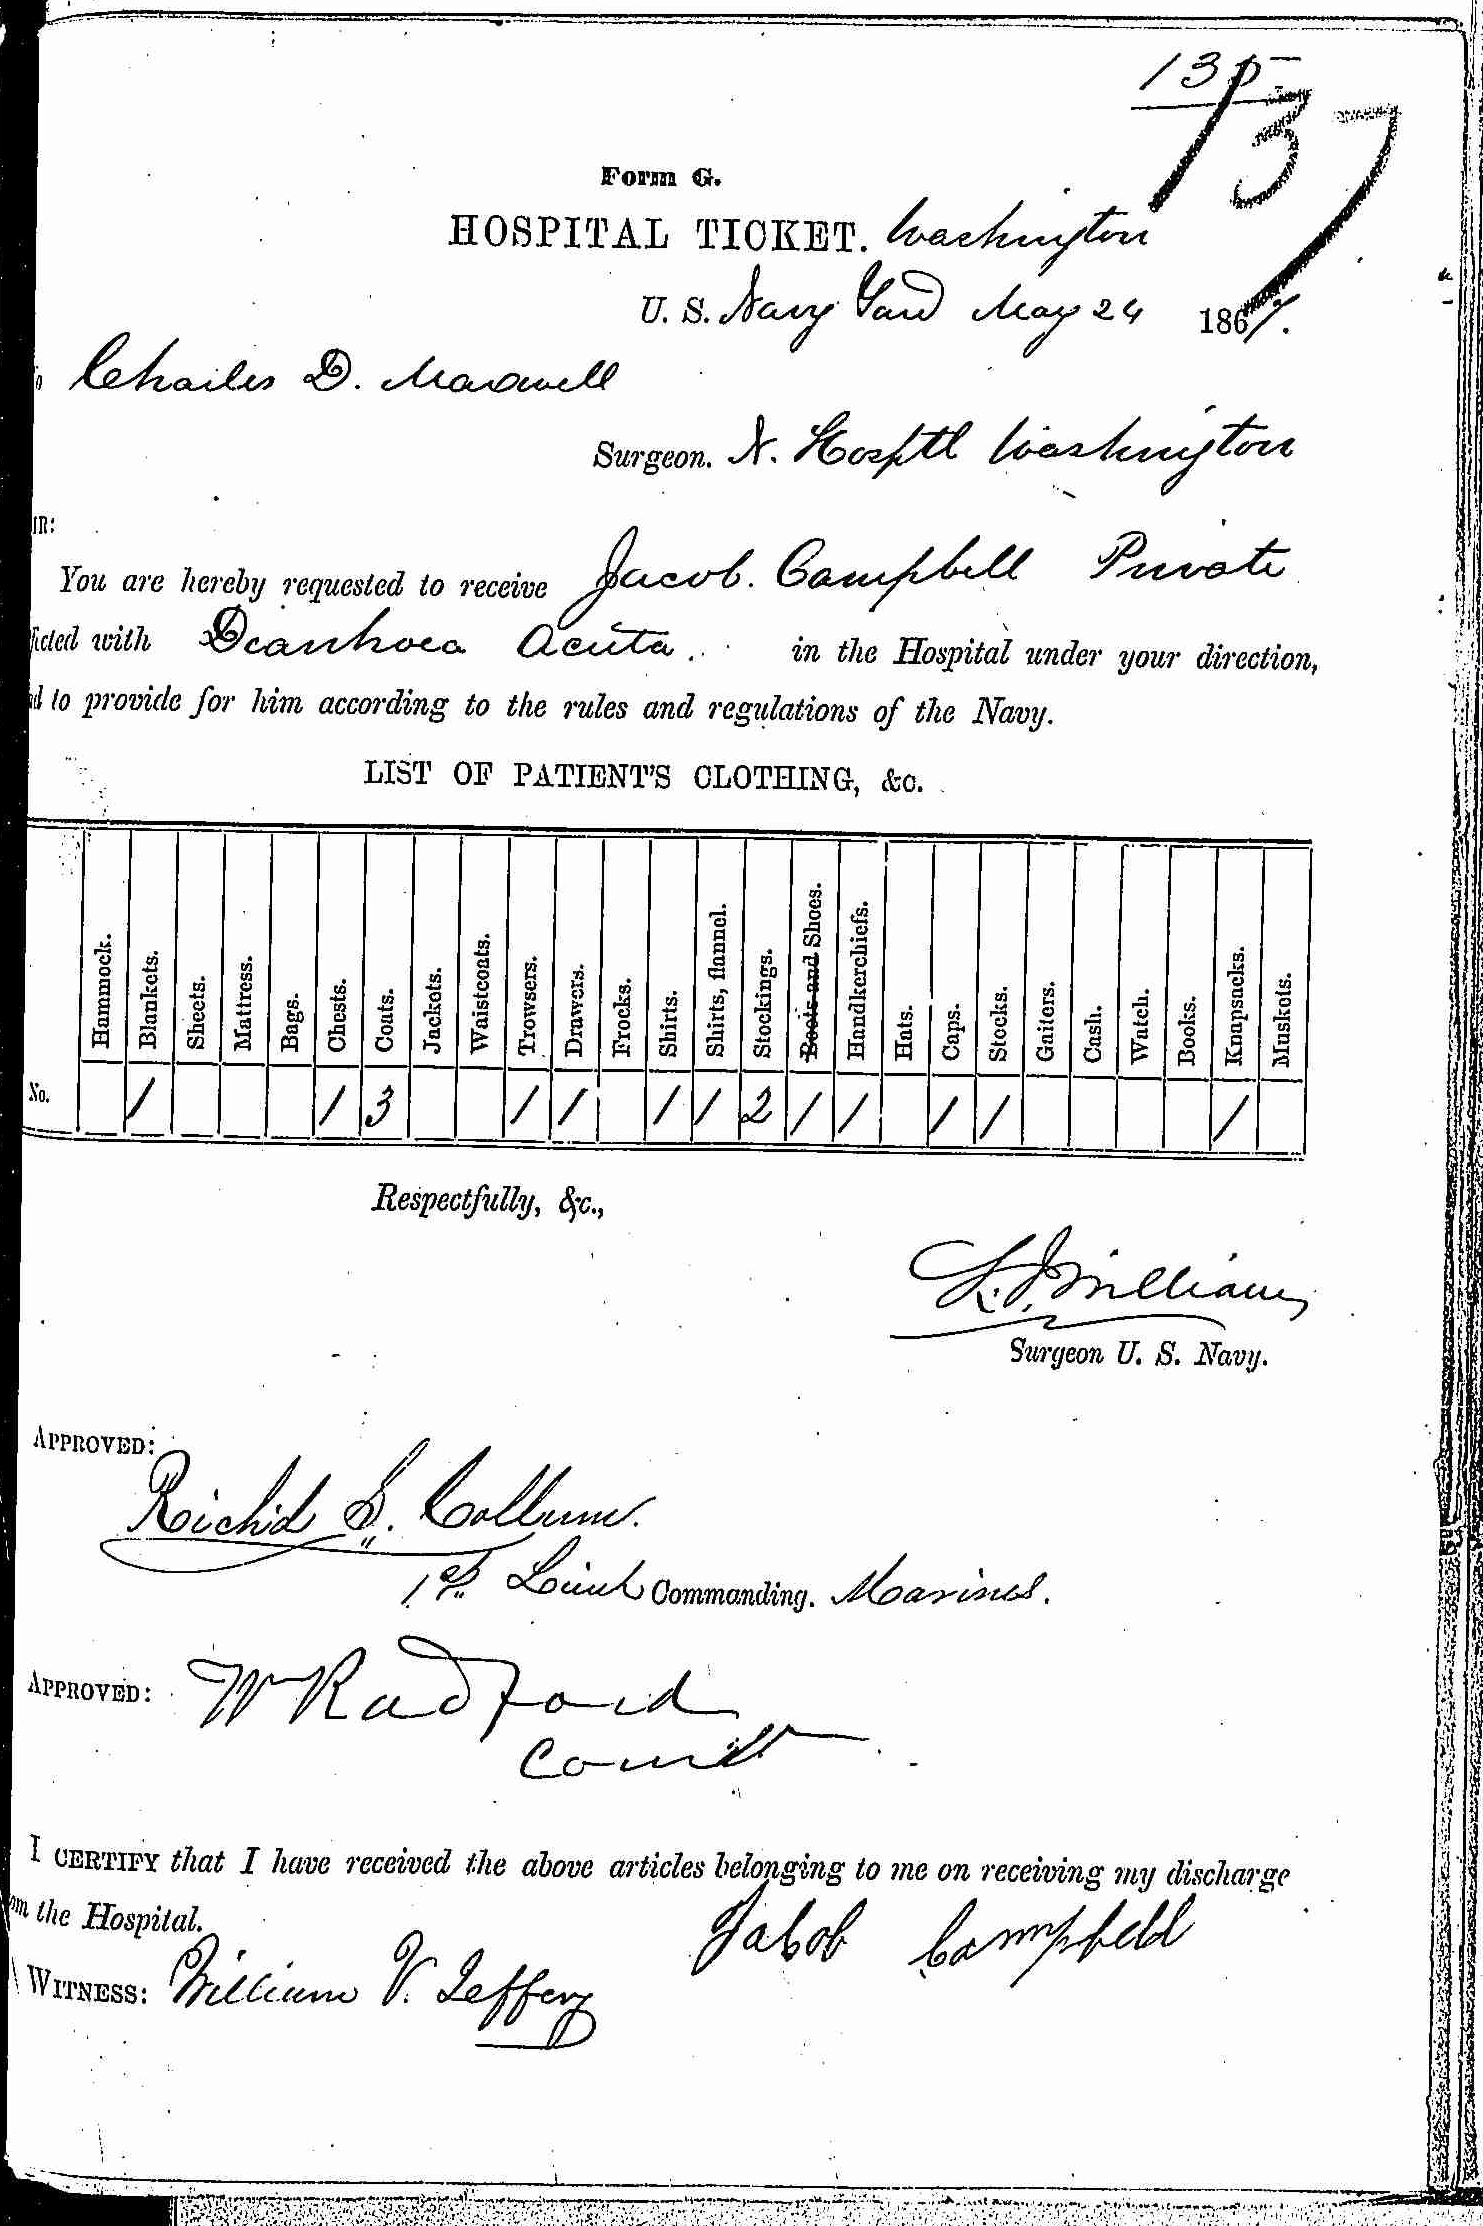 135
137
Form G.
HOSPITAL TICKET. Washington
U. S. Navy Yard May 24 1867.
To Charles D. Maxwell
Surgeon. N. Hosptl Washington
IR:
You are hereby requested to receive Jacob. Campbell Private
icted with Diarrhoea Acuta. in the Hospital under your direction,
d to provide for him according to the rules and regulations of the Navy.
LIST OF PATIENT'S CLOTHING, &c.
Hammock. Blankets. Sheets. Mattress. Bags. Chests. Coats. Jackets. Waistcoats. Trowsers. Drawers. Frocks. Shirts. Shirts, flannel. Stockings. Boots and Shoes. Handkerchiefs. Hats. Caps. Stocks. Gaiters. Cash. Watch. Books. Knapsacks. Muskets.
No. 1 1 3 1 1 1 1 2 1 1 1 1 1
Respectfully, &c.,
L. J. Williams
Surgeon U. S. Navy.
APPROVED:
Richd S. Collum.
1st Lieut Commanding. Marines.
APPROVED: W Radford
Comdt
I CERTIFY that I have received the above articles belonging to me on receiving my discharge
om the Hospital.
Jacob Campbell
WITNESS: William V. Jeffery